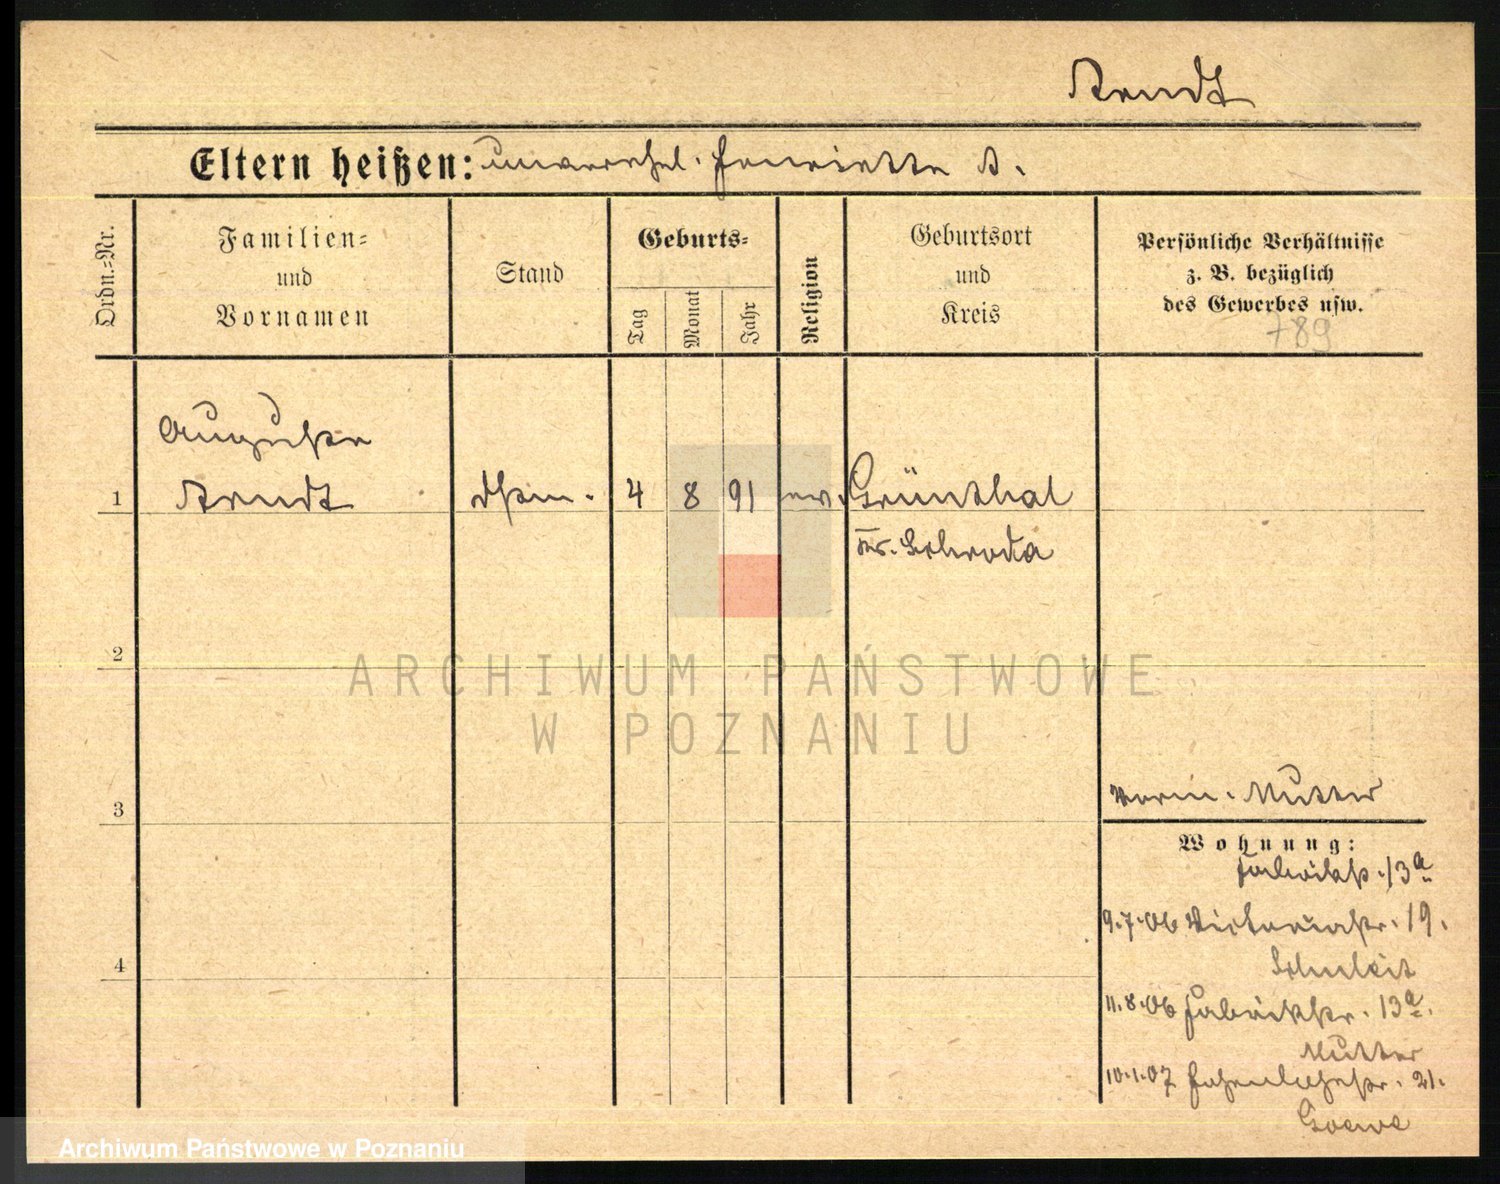 Arndt
Eltern heißen: unverehel. Henriette A.
Ordn.-Nr.
Familien-
und
Vornamen
Stand
Geburts-
Tag
Monat
Jahr
Religion
Geburtsort
und
Kreis
Persönliche Verhältnisse
z. B. bezüglich
des Gewerbes usw.
789
Auguste
1 Arndt dstm. 4 8 91 ev. Grünthal
Kr. Schroda
2
ARCHIWUM PAŃSTWOWE
W POZNANIU
3
Vorm. Mutter
Wohnung:
Fabrikstr. 13a
9.7.06 Victoriastr. 19.
4
11.8.06 Fabrikstr. 13a.
Mutter
10.1.07 Hohenlohestr. 21.
Archiwum Państwowe w Poznaniu